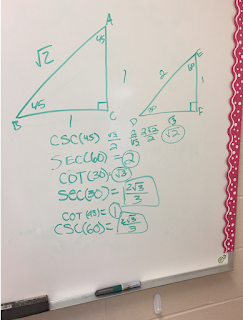 A
45
√2
1
45
B
1
C
E
60
2
1
30
D
√3
F
CSC(45) √3/2 2/√3 2√3/2 √2
SEC(60) = 2
COT(30) √3
SEC(30) = 2√3/3
COT(45) = 1
CSC(60) = 2√3/3